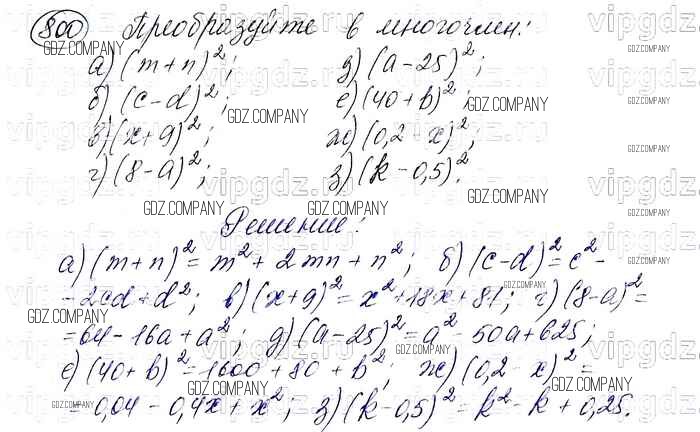 800 Преобразуйте в многочлен:
а) (m+n)²; д) (a-25)²;
б) (c-d)²; е) (40+b)²;
в) (x+9)²; ж) (0,2-x)²;
г) (8-a)²; з) (k-0,5)².
Решение:
а) (m+n)² = m² + 2mn + n²; б) (c-d)² = c² -
- 2cd + d²; в) (x+9)² = x² + 18x + 81; г) (8-a)² =
= 64 - 16a + a²; д) (a-25)² = a² - 50a + 625;
е) (40+b)² = 1600 + 80 + b²; ж) (0,2-x)² =
= 0,04 - 0,4x + x²; з) (k-0,5)² = k² - k + 0,25.
GDZ.COMPANY
vipgdz.ru